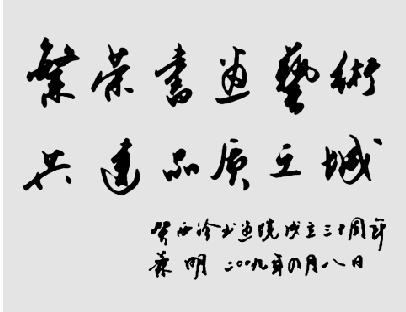 繁荣書画藝術
共建品质之城
贺西泠书画院成立三十周年
葉明 二〇〇九年四月八日